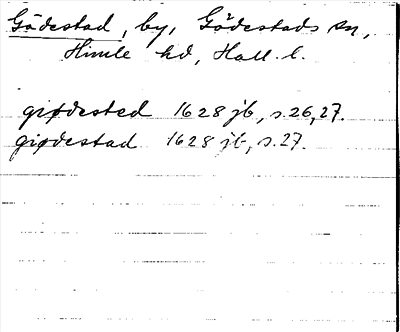 Gödestad, by, Gödestads sn,
Himle hd, Hall. l.
giødested 1628 jb, s. 26, 27.
giødestad 1628 jb, s. 27.